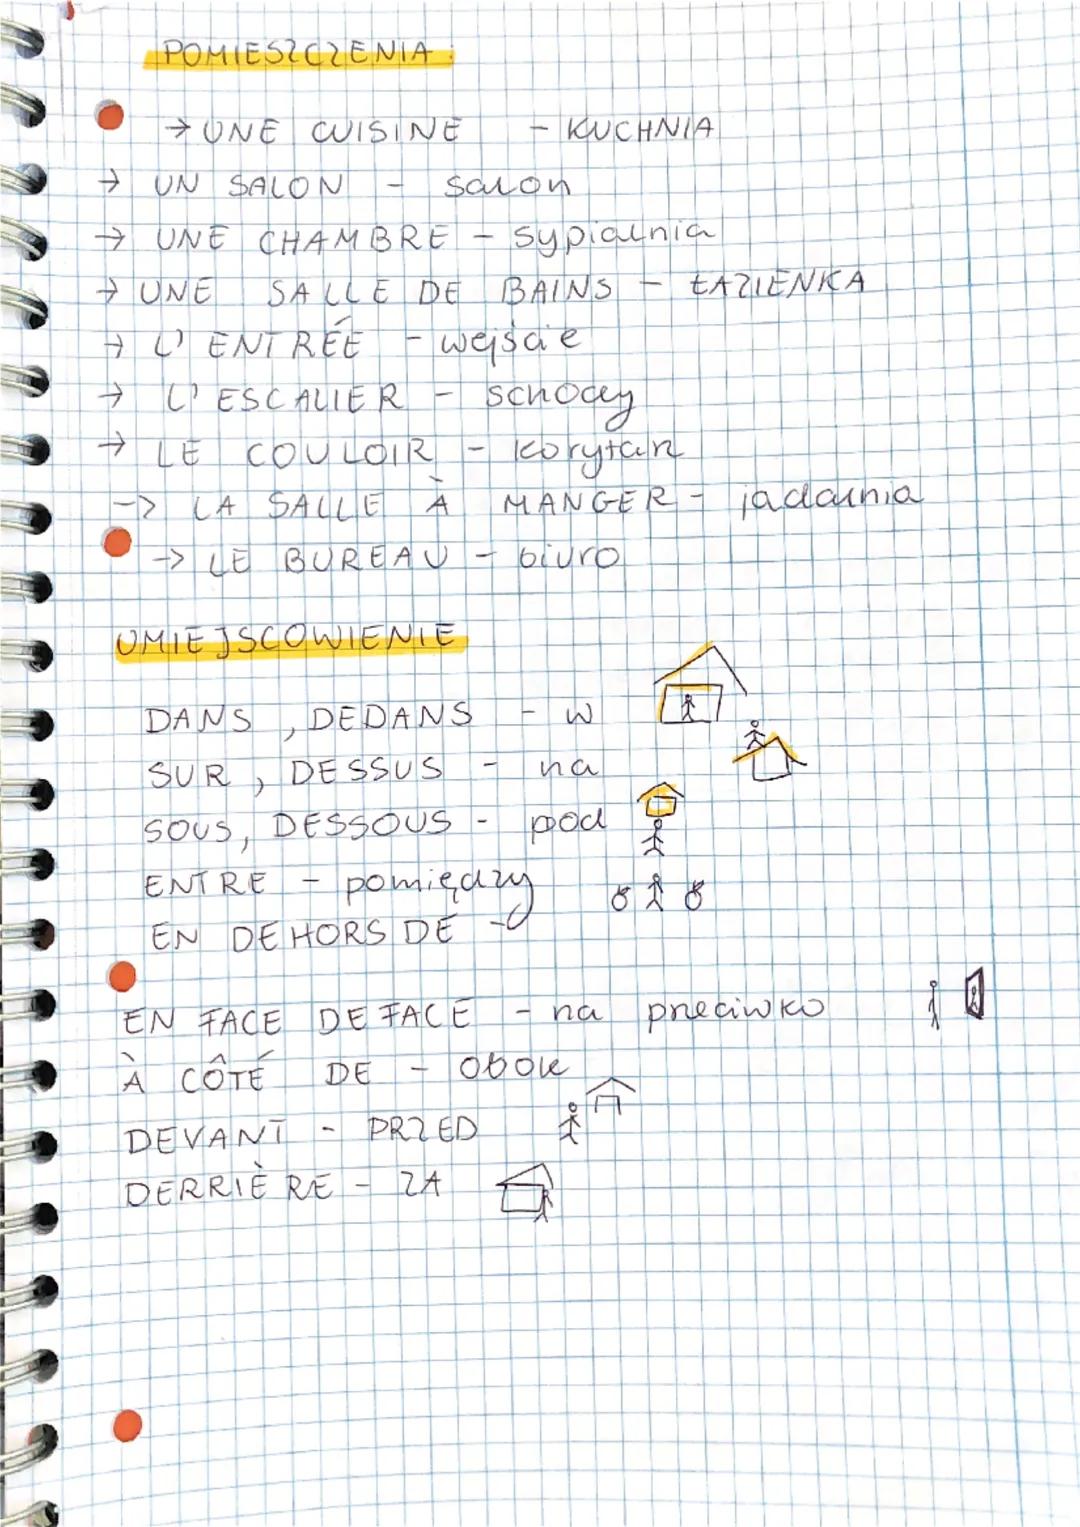 POMIESZCZENIA:
→ UNE CUISINE - KUCHNIA
→ UN SALON - salon
→ UNE CHAMBRE - sypialnia
→ UNE SALLE DE BAINS - ŁAZIENKA
→ L'ENTRÉE - wejście
→ L'ESCALIER - schody
→ LE COULOIR - korytarz
-> LA SALLE À MANGER - jadalnia
-> LE BUREAU - biuro
UMIEJSCOWIENIE
DANS, DEDANS - w
SUR, DESSUS - na
SOUS, DESSOUS - pod
ENTRE - pomiędzy
EN DEHORS DE -
EN FACE DE FACE - na przeciwko
À CÔTÉ DE - obok
DEVANT - PRZED
DERRIÈRE - ZA